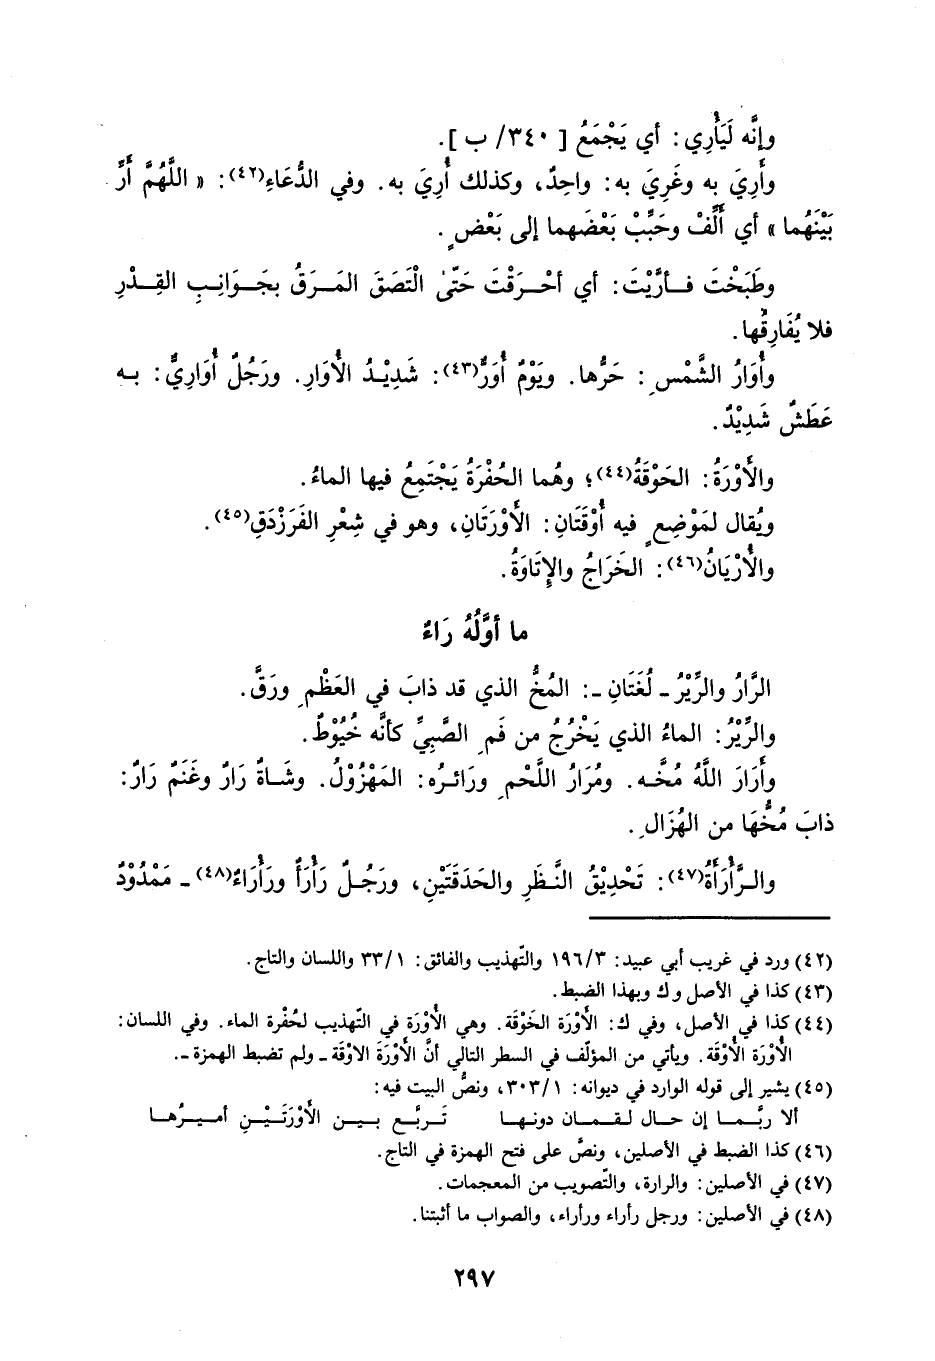 وإنَّه لَيَأْرِي: أي يَجْمَعُ [ ٣٤٠/ ب ].
وأَرِيَ به وغَرِيَ به: واحِدٌ، وكذلك أُرِيَ به. وفي الدُّعَاءِ(٤٢): « اللَّهُمَّ أَرِّ
بَيْنَهُما » أي أَلِّفْ وحَبِّبْ بَعْضَهما إلى بَعْضٍ.
وطَبَخْتَ فـأرَّيْتَ: أي أحْـرَقْتَ حَتّىٰ الْتَصَقَ المَـرَقُ بجَـوَانِبِ القِـدْرِ
فلا يُفَارِقُها.
وأُوَارُ الشَّمْسِ: حَرُّها. ويَوْمٌ أُوَرٌ(٤٣): شَدِيْـدُ الأُوَارِ. ورَجُلٌ أُوَارِيٌّ: بـه
عَطَشٌ شَدِيْدٌ.
والأَوْرَةُ: الحَوْقَةُ(٤٤)؛ وهُما الحُفْرَةُ يَجْتَمِعُ فيها الماءُ.
ويُقال لمَوْضِعٍ فيه أُوْقَتَانِ: الأَوْرَتَانِ، وهو في شِعْرِ الفَرَزْدَقِ(٤٥).
والأُرْيَانُ(٤٦): الخَرَاجُ والإِتَاوَةُ.
ما أوَّلُهُ رَاءٌ
الرَّارُ والرِّيْرُ ـ لُغَتَانِ ـ: المُخُّ الذي قد ذابَ في العَظْمِ ورَقَّ.
والرِّيْرُ: الماءُ الذي يَخْرُجُ من فَمِ الصَّبِيِّ كأنَّه خُيُوْطٌ.
وأَرَارَ اللَّهُ مُخَّـه. ومُرَارُ اللَّحْمِ ورَائـرُه: المَهْزُوْلُ. وشَـاةٌ رَارٌ وغَنَمٌ رَارٌ:
ذابَ مُخُّهَا من الهُزَالِ.
والـرَّأْرَأَةُ(٤٧): تَحْدِيْقُ النَّـظَرِ والحَدَقَتَيْنِ، ورَجُـلٌ رَأْرَأٌ ورَأْرَاءٌ(٤٨) ـ مَمْدُوْدٌ
(٤٢) ورد في غريب أبي عبيد: ١٩٦/٣ والتّهذيب والفائق: ٣٣/١ واللسان والتاج.
(٤٣) كذا في الأصل و ك وبهذا الضبط.
(٤٤) كذا في الأصل، وفي ك: الأَوْرَة الخَوْقَة. وهي الأُوْرَة في التّهذيب لحُفْرة الماء. وفي اللسان:
الأُوْرَة الأُوْقَة. ويأتي من المؤلّف في السطر التالي أنَّ الأَوْرَةَ الاوْقَة ـ ولم تضبط الهمزة ـ.
(٤٥) يشير إلى قوله الوارد في ديوانه: ٣٠٣/١، ونصُّ البيت فيه:
ألا ربَّـمـا إن حـال لـقـمـان دونـهـا تَـربَّـع بـيـن الأَوْرَتَـيْـنِ أمـيـرُهـا
(٤٦) كذا الضبط في الأصلين، ونصَّ على فتح الهمزة في التاج.
(٤٧) في الأصلين: والرارة، والتّصويب من المعجمات.
(٤٨) في الأصلين: ورجل رأراء ورأراء، والصواب ما أثبتنا.
٢٩٧